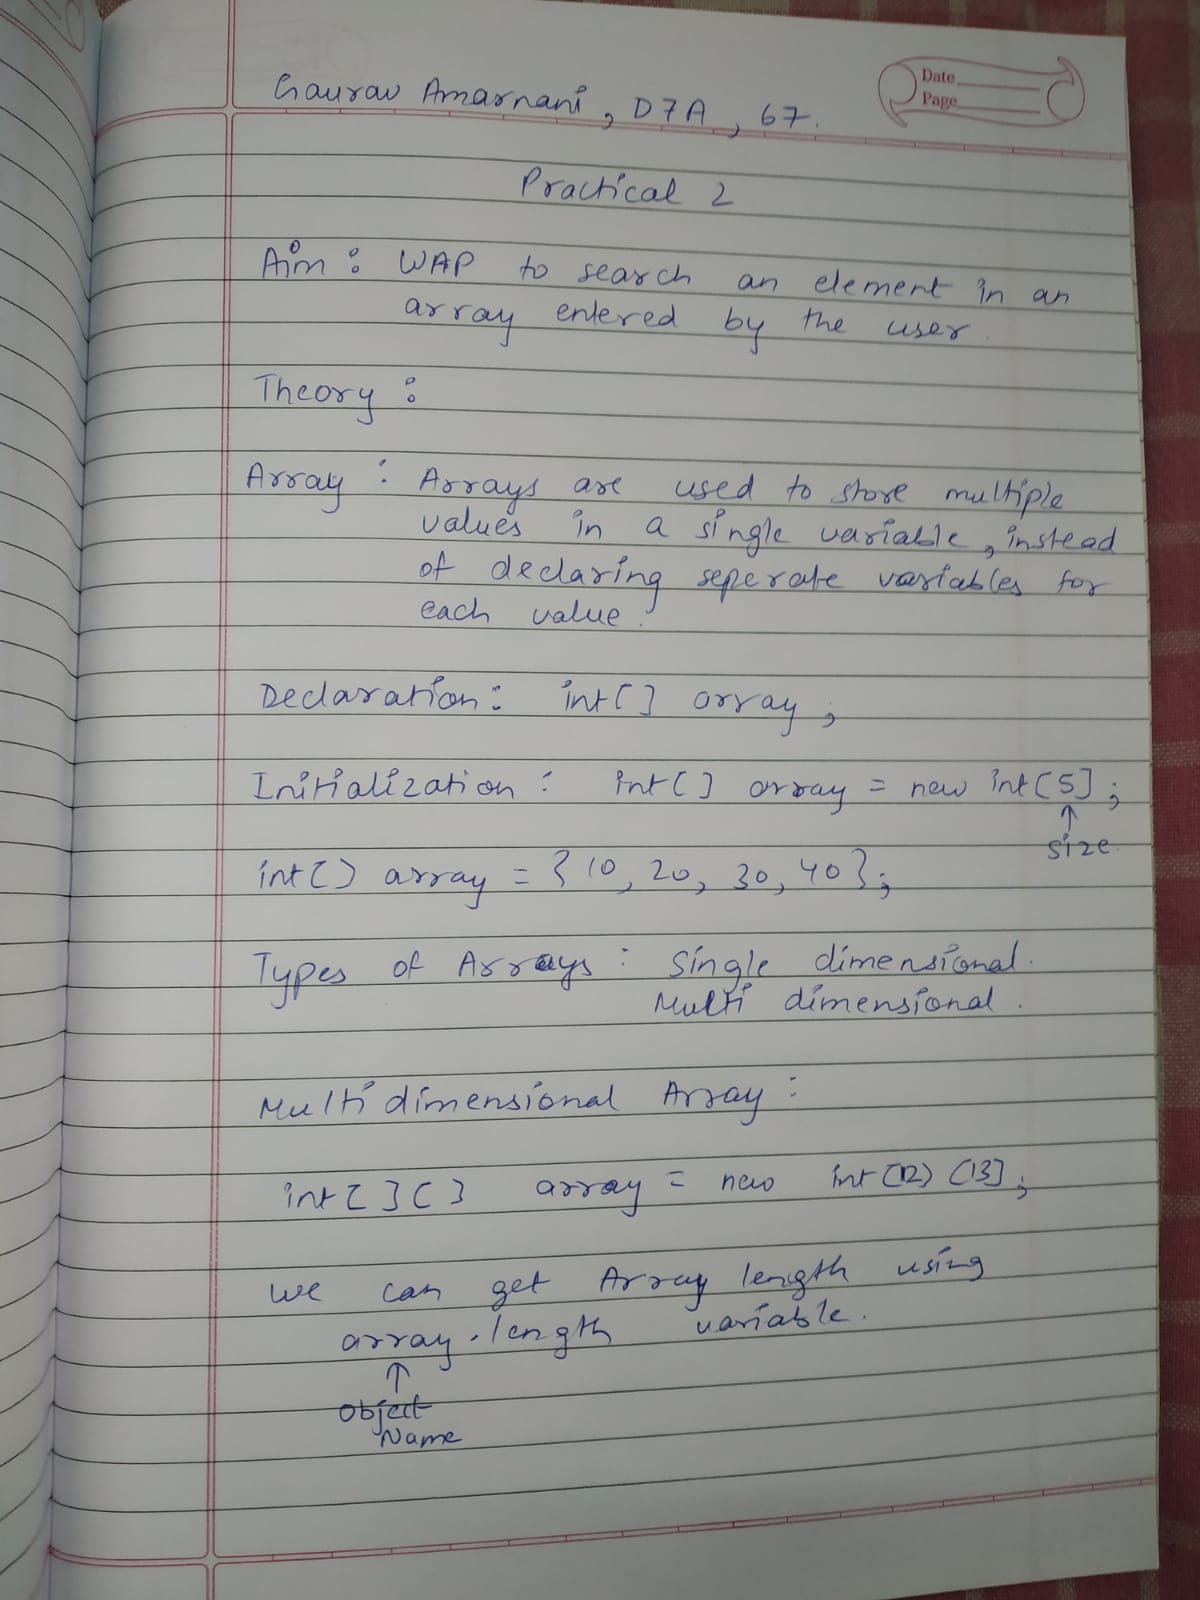 Gaurav Amarnani, D7A, 67.
Date
Page
Practical 2
Aim : WAP to search an element in an
array entered by the user.
Theory :
Array : Arrays are used to store multiple
values in a single variable, instead
of declaring seperate variables for
each value.
Declaration : int[] array;
Initialization : int[] array = new int[5];
↑
size.
int[] array = {10, 20, 30, 40};
Types of Arrays : Single dimensional.
Multi dimensional.
Multi dimensional Array :
int[][] array = new int[12][13];
We can get Array length using
array.length variable.
↑
Object
Name